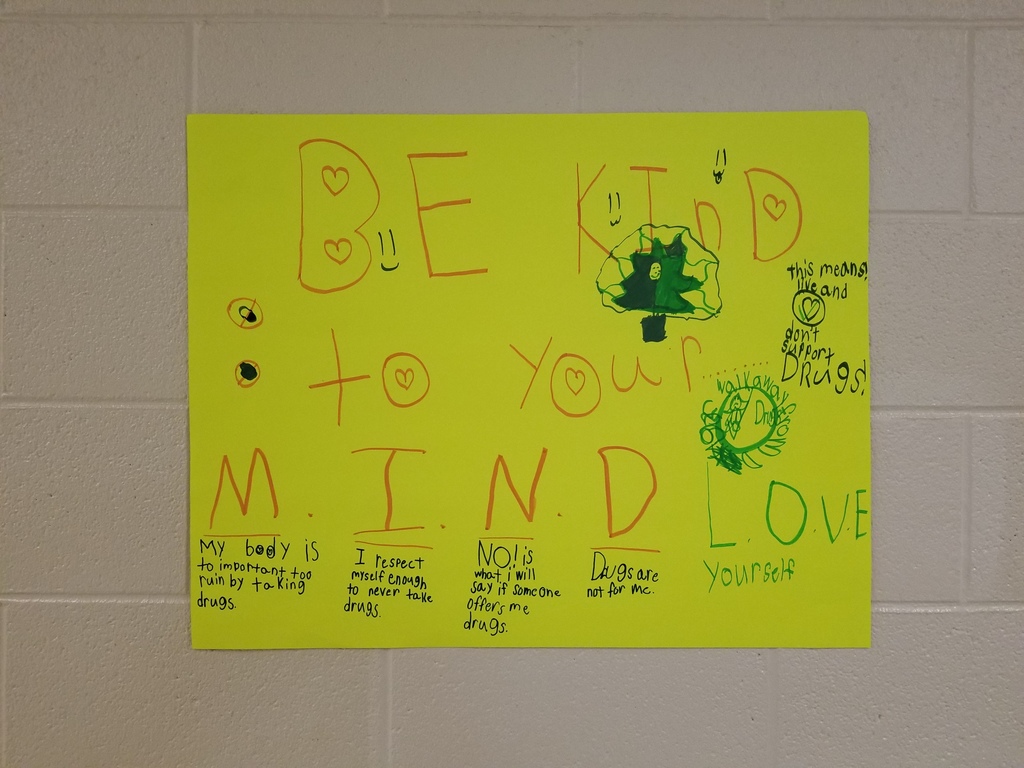 BE KInD
this means!
live and
don't
support
DRugs!
to your.......
walkaway
Drugs
M. I. N. D
L.O.V.E
yourself
My body is
to important too
ruin by taking
drugs.
I respect
myself enough
to never take
drugs.
NO! is
what i will
say if someone
offers me
drugs.
Drugs are
not for me.